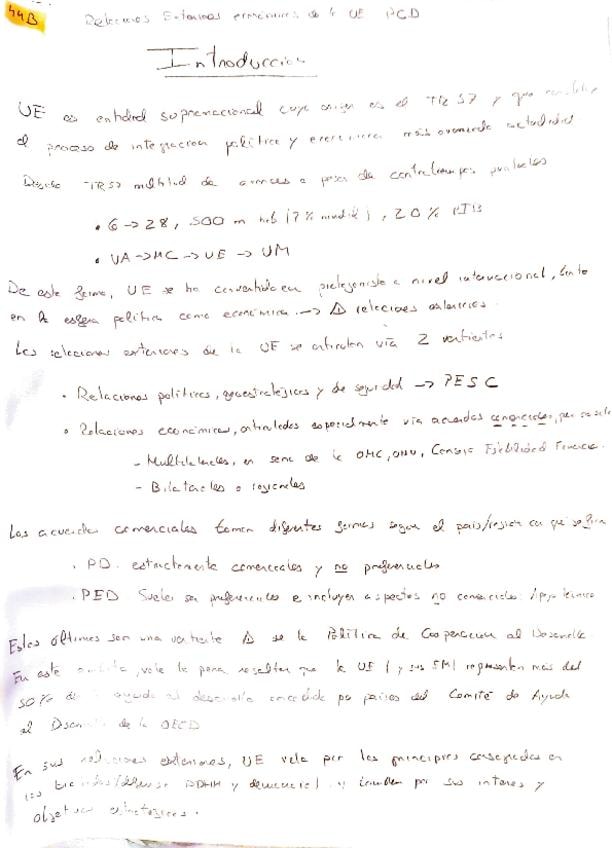 44B
Relaciones Exteriores económicas de la UE PCD
Introducción
UE es entidad supranacional cuyo origen es el TR57 y que
el proceso de integración política y económica más avanzado actualidad
Desde TR57 multitud de avances a pesar de contratiempos puntuales
• 6 → 28, 500 m hab (7% mundial), 20% PIB
• UA → MC → UE → UM
De esta forma, UE se ha convertido en protagonista a nivel internacional, tanto
en la esfera política como económica → Δ relaciones exteriores.
Las relaciones exteriores de la UE se articulan vía 2 vertientes
• Relaciones políticas, geoestratégicas y de seguridad → PESC
• Relaciones económicas, articuladas especialmente vía acuerdos comerciales,
- Multilaterales, en seno de la OMC, ONU, Consejo Estabilidad Financiera.
- Bilaterales o regionales
Los acuerdos comerciales toman diferentes formas según el país/región con que se firma
• PD. estrictamente comerciales y no preferenciales
• PED Suelen ser preferenciales e incluyen aspectos no comerciales: Apoyo técnico
Estos últimos son una vertiente Δ de la Política de Cooperación al Desarrollo.
En este, vale la pena resaltar que la UE (y sus EM) representan más del
50% de ayuda al desarrollo concedida por países del Comité de Ayuda
al Desarrollo de la OECD
En sus relaciones exteriores, UE vela por los principios consagrados en
DDHH y democracia) y también por sus intereses y
objetivos estratégicos.